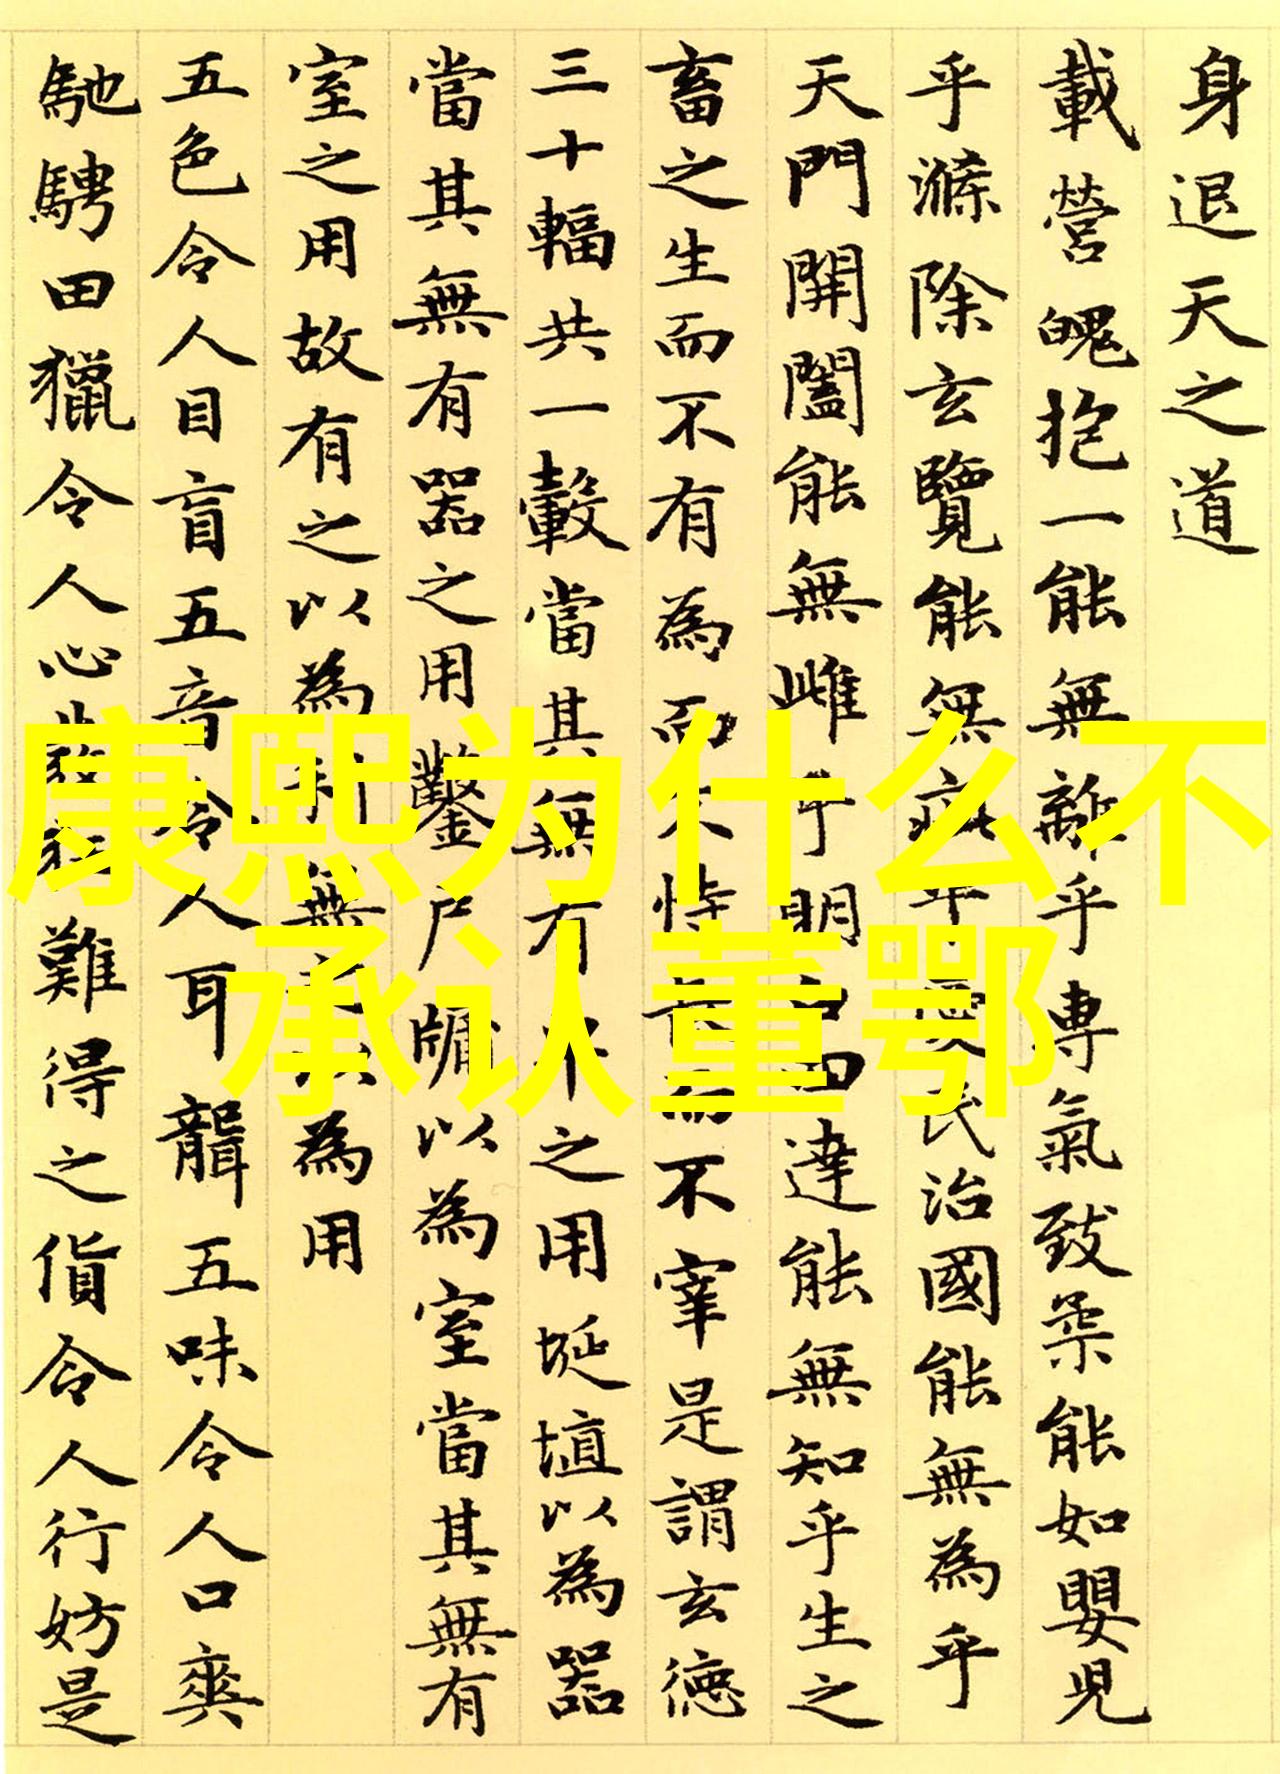 身退天之道
載營魄抱一能無離乎専氣致柔能如嬰児
乎滌除玄覽能無疵乎愛民治國能無為乎
天門開闔能無雌乎明白四達能無知乎生之
畜之生而不有為而不恃長而不宰是謂玄徳
三十輻共一轂當其無有車之用埏埴以為器
當其無有器之用鑿戸牖以為室當其無有
室之用故有之以為利無之以為用
五色令人目盲五音令人耳聾五味令人口爽
馳騁田獵令人心發狂難得之貨令人行妨是
康熙为什么不
承认董鄂